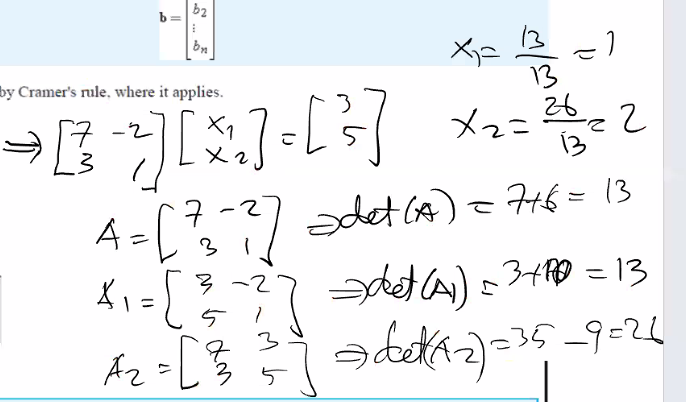 b = [b2 ⋮ bn]
by Cramer's rule, where it applies.
x1 = 13/13 = 1
x2 = 26/13 = 2
⇒ [7 -2; 3 1] [x1; x2] = [3; 5]
A = [7 -2; 3 1] ⇒ det(A) = 7+6 = 13
A1 = [3 -2; 5 1] ⇒ det(A1) = 3+10 = 13
A2 = [7 3; 3 5] ⇒ det(A2) = 35 - 9 = 26